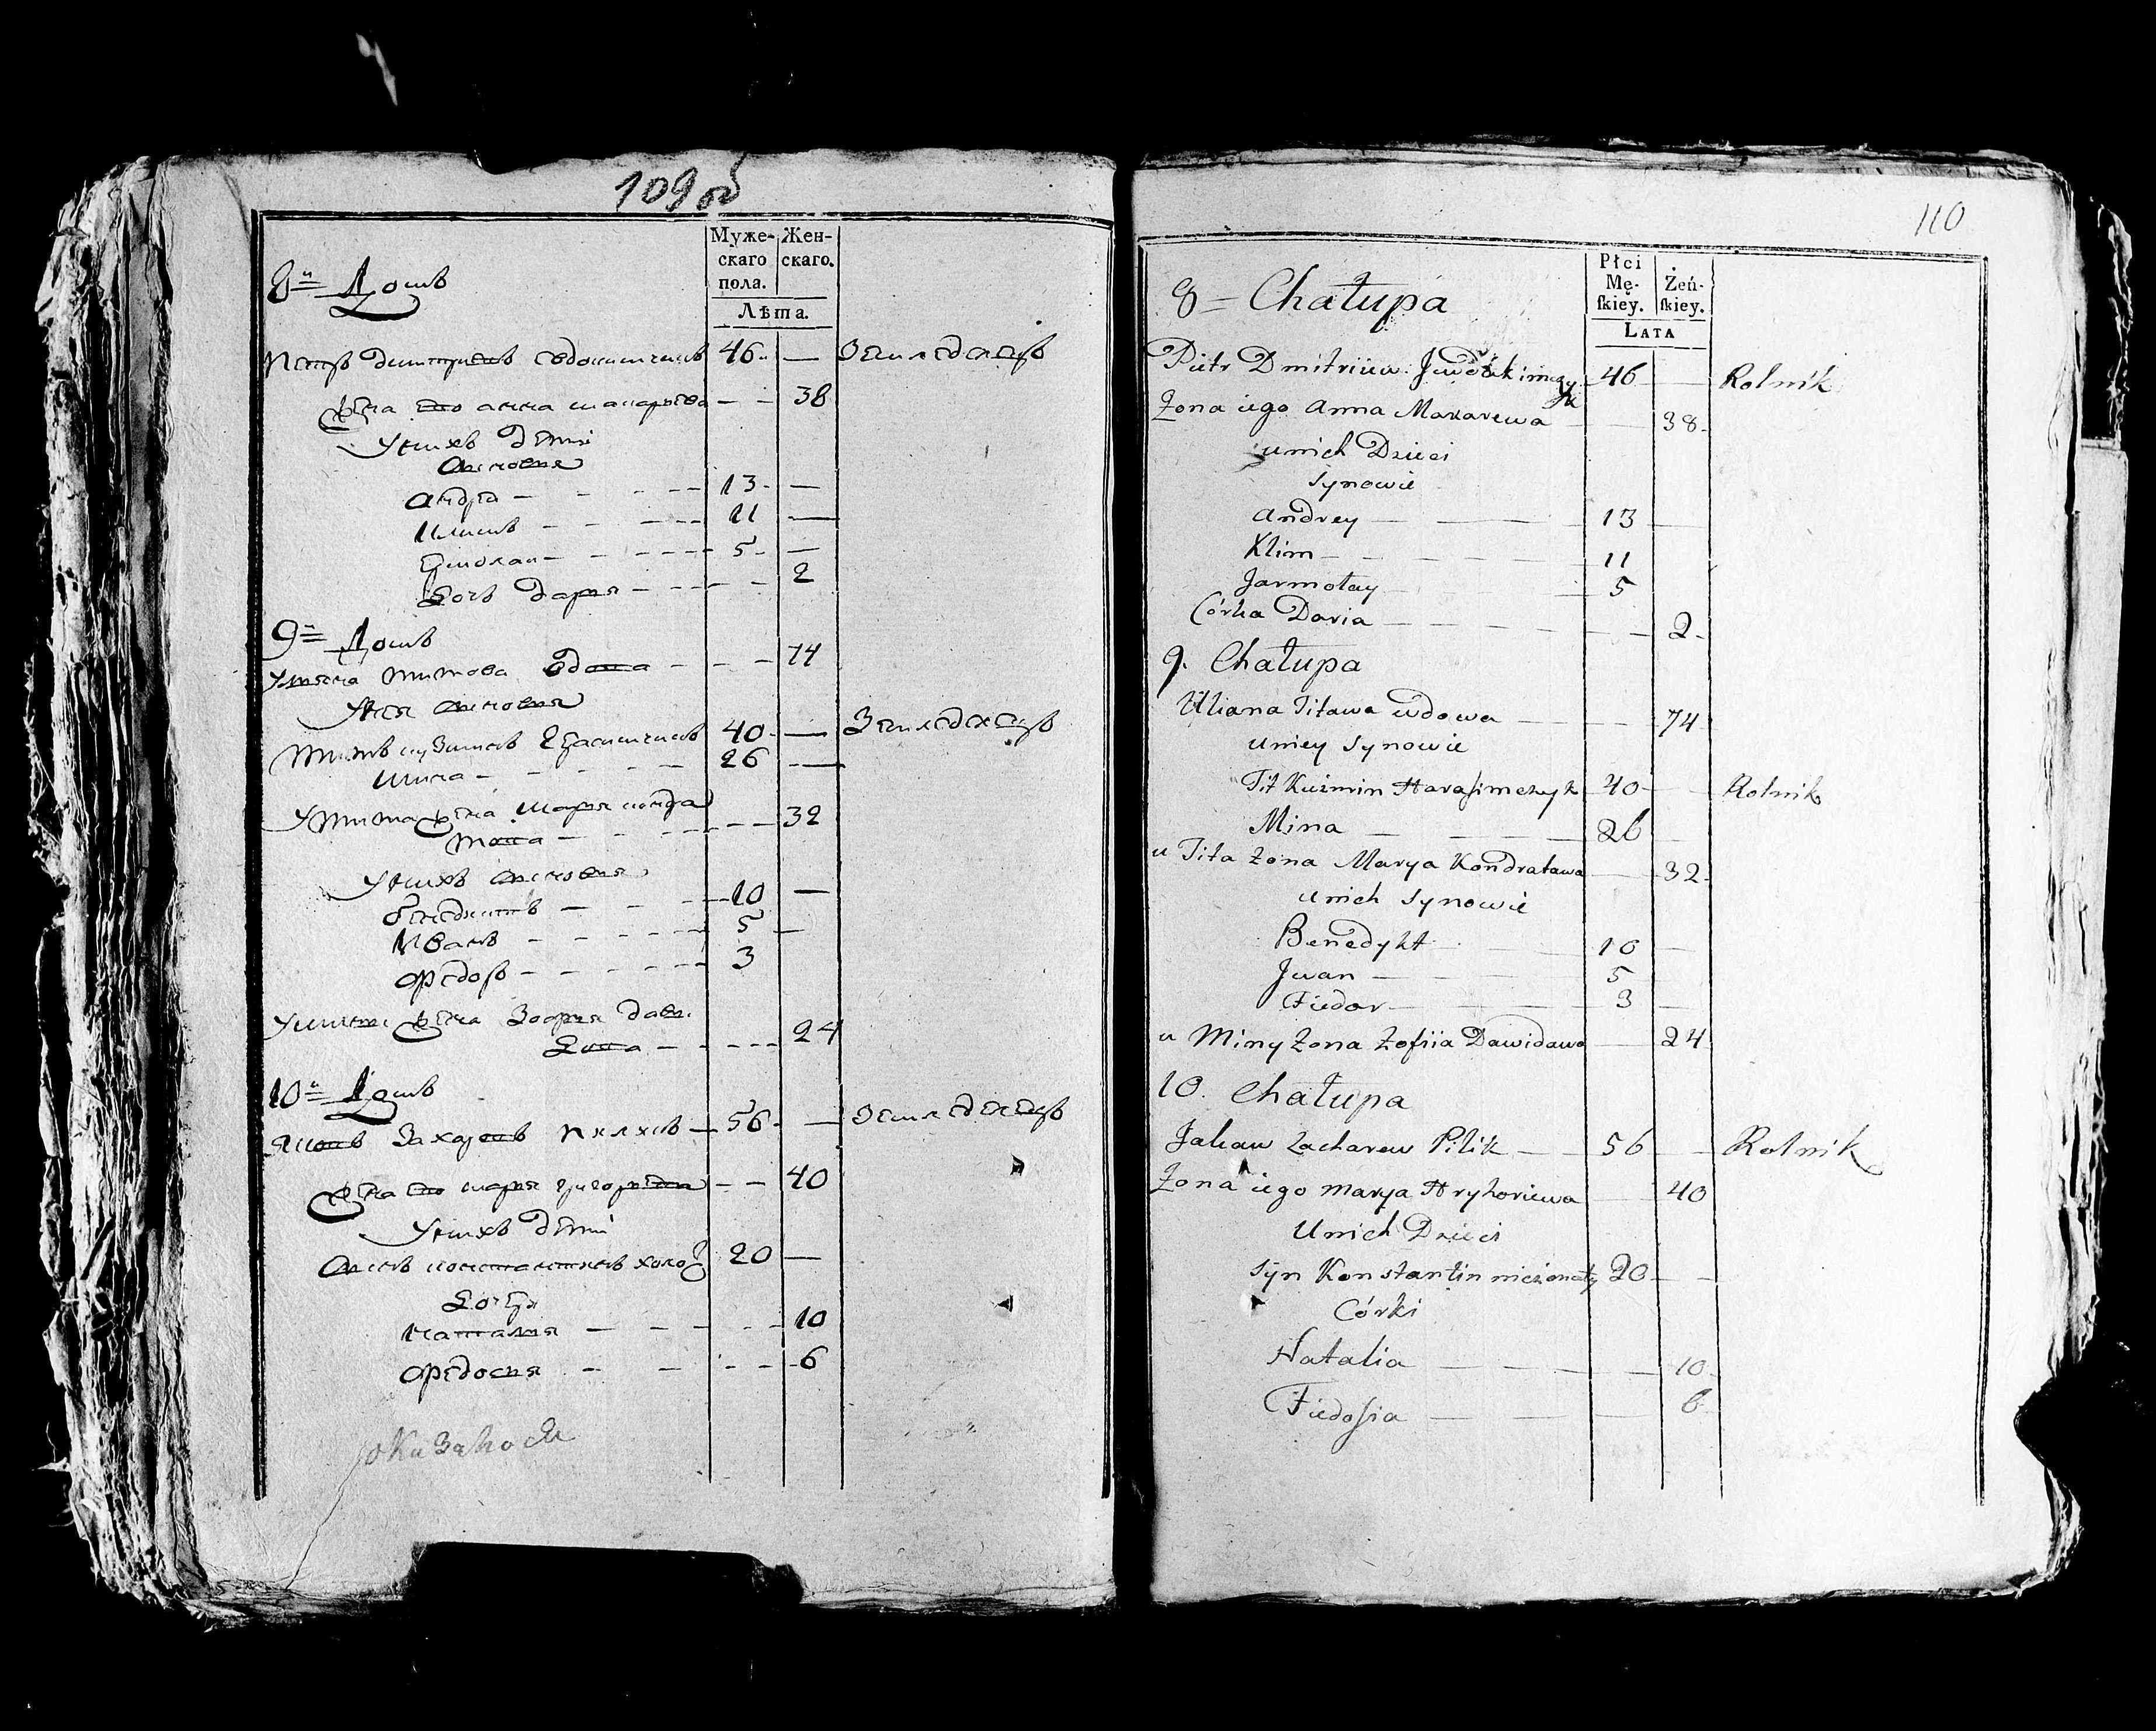 109 об
Муже-
скаго
пола.
Жен-
скаго.
Лѣта.
8й Домъ
Петръ Дмитриевъ Евдокимчикъ 46 — Земледелецъ
жена его анна макарьева — — 38
у нихъ дети
Сыновья
андрей — — 13 —
климъ — — 11 —
Ермолай — — 5 —
Дочь дарья — — 2
9й Домъ
Ульяна титова вдова — — 74
у нея сыновья
Титъ кузминъ Герасимчикъ 40 — Земледелецъ
мина — 26 —
у тита жена марья кондра
това — — 32
у нихъ сыновья
бенедиктъ — 10 —
Иванъ — 5 —
Федоръ — 3
у мины жена Зофия дави
дова — 24
10й Домъ
яковъ Захаревъ Пиликъ — 56 — Земледелецъ
жена его марья григорьева — — 40
у нихъ дети
Сынъ константинъ холос 20 —
Дочери
наталия — — 10
Федосия — — 6
110
Płci
Mę-
skiey.
Żeń-
skiey.
LATA
8 = Chałupa
Piotr Dmitriiew Jewdokimczyk 46 — Rolnik
Żona iego Anna Makarewa — 38
u nich Dzieci
Synowie
Andrey — 13 —
Klim — 11
Jarmołay — 5
Córka Daria — 2
9. Chałupa
Uliana Titawa wdowa — 74
u niey Synowie
Tit Kuźmin Harasimczyk 40 — Rolnik
Mina — 26
u Tita żona Marya Kondratawa — 32
u nich Synowie
Benedykt — 10 —
Jwan — 5
Fiedor — 3 —
u Miny żona Zofiia Dawidawa — 24
10. Chałupa
Jakaw Zacharew Pilik — 56 — Rolnik
Żona iego Marya Hryhoriewa — 40
U nich Dzieci
Syn Konstantin nieżonaty 20 —
Córki
Natalia — 10
Fiedosia — 6